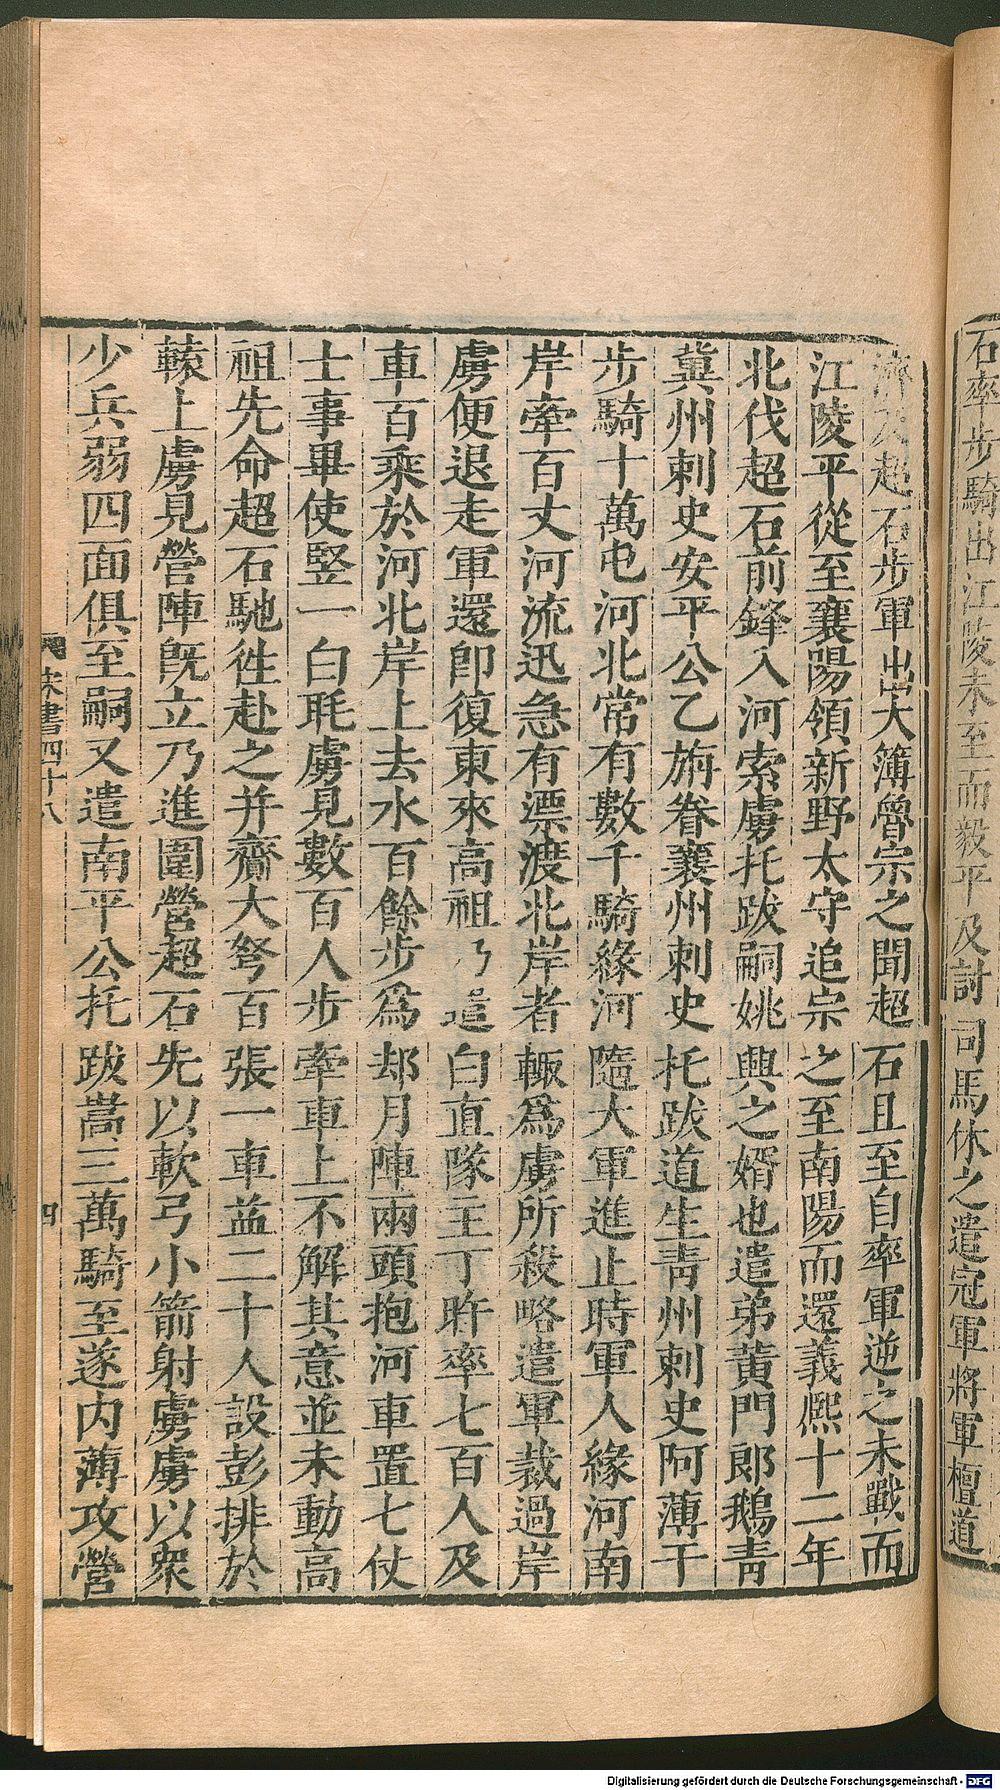 石率步騎出江陵未至而毅平及討司馬休之遣冠軍將軍檀道
濟及超石步軍出大簿魯宗之聞超石且至自率軍逆之未戰而
江陵平從至襄陽領新野太守追宗之至南陽而還義熙十二年
北伐超石前鋒入河索虜托跋嗣姚興之婿也遣弟黃門郞鵝靑
冀州刺史安平公乙旃眷襄州刺史托跋道生靑州刺史阿薄干
步騎十萬屯河北常有數千騎緣河隨大軍進止時軍人緣河南
岸牽百丈河流迅急有漂渡北岸者輙爲虜所殺略遣軍裁過岸
虜便退走軍還卽復東來高祖乃遣白直隊主丁旿率七百人及
車百乘於河北岸上去水百餘步爲却月陣兩頭抱河車置七仗
士事畢使竪一白毦虜見數百人步牽車上不解其意並未動高
祖先命超石馳徃赴之并齎大弩百張一車益二十人設彭排於
轅上虜見營陣旣立乃進圍營超石先以軟弓小箭射虜虜以衆
少兵弱四面俱至嗣又遣南平公托跋嵩三萬騎至遂內薄攻營
宋書四十八
四
Digitalisierung gefördert durch die Deutsche Forschungsgemeinschaft - DFG